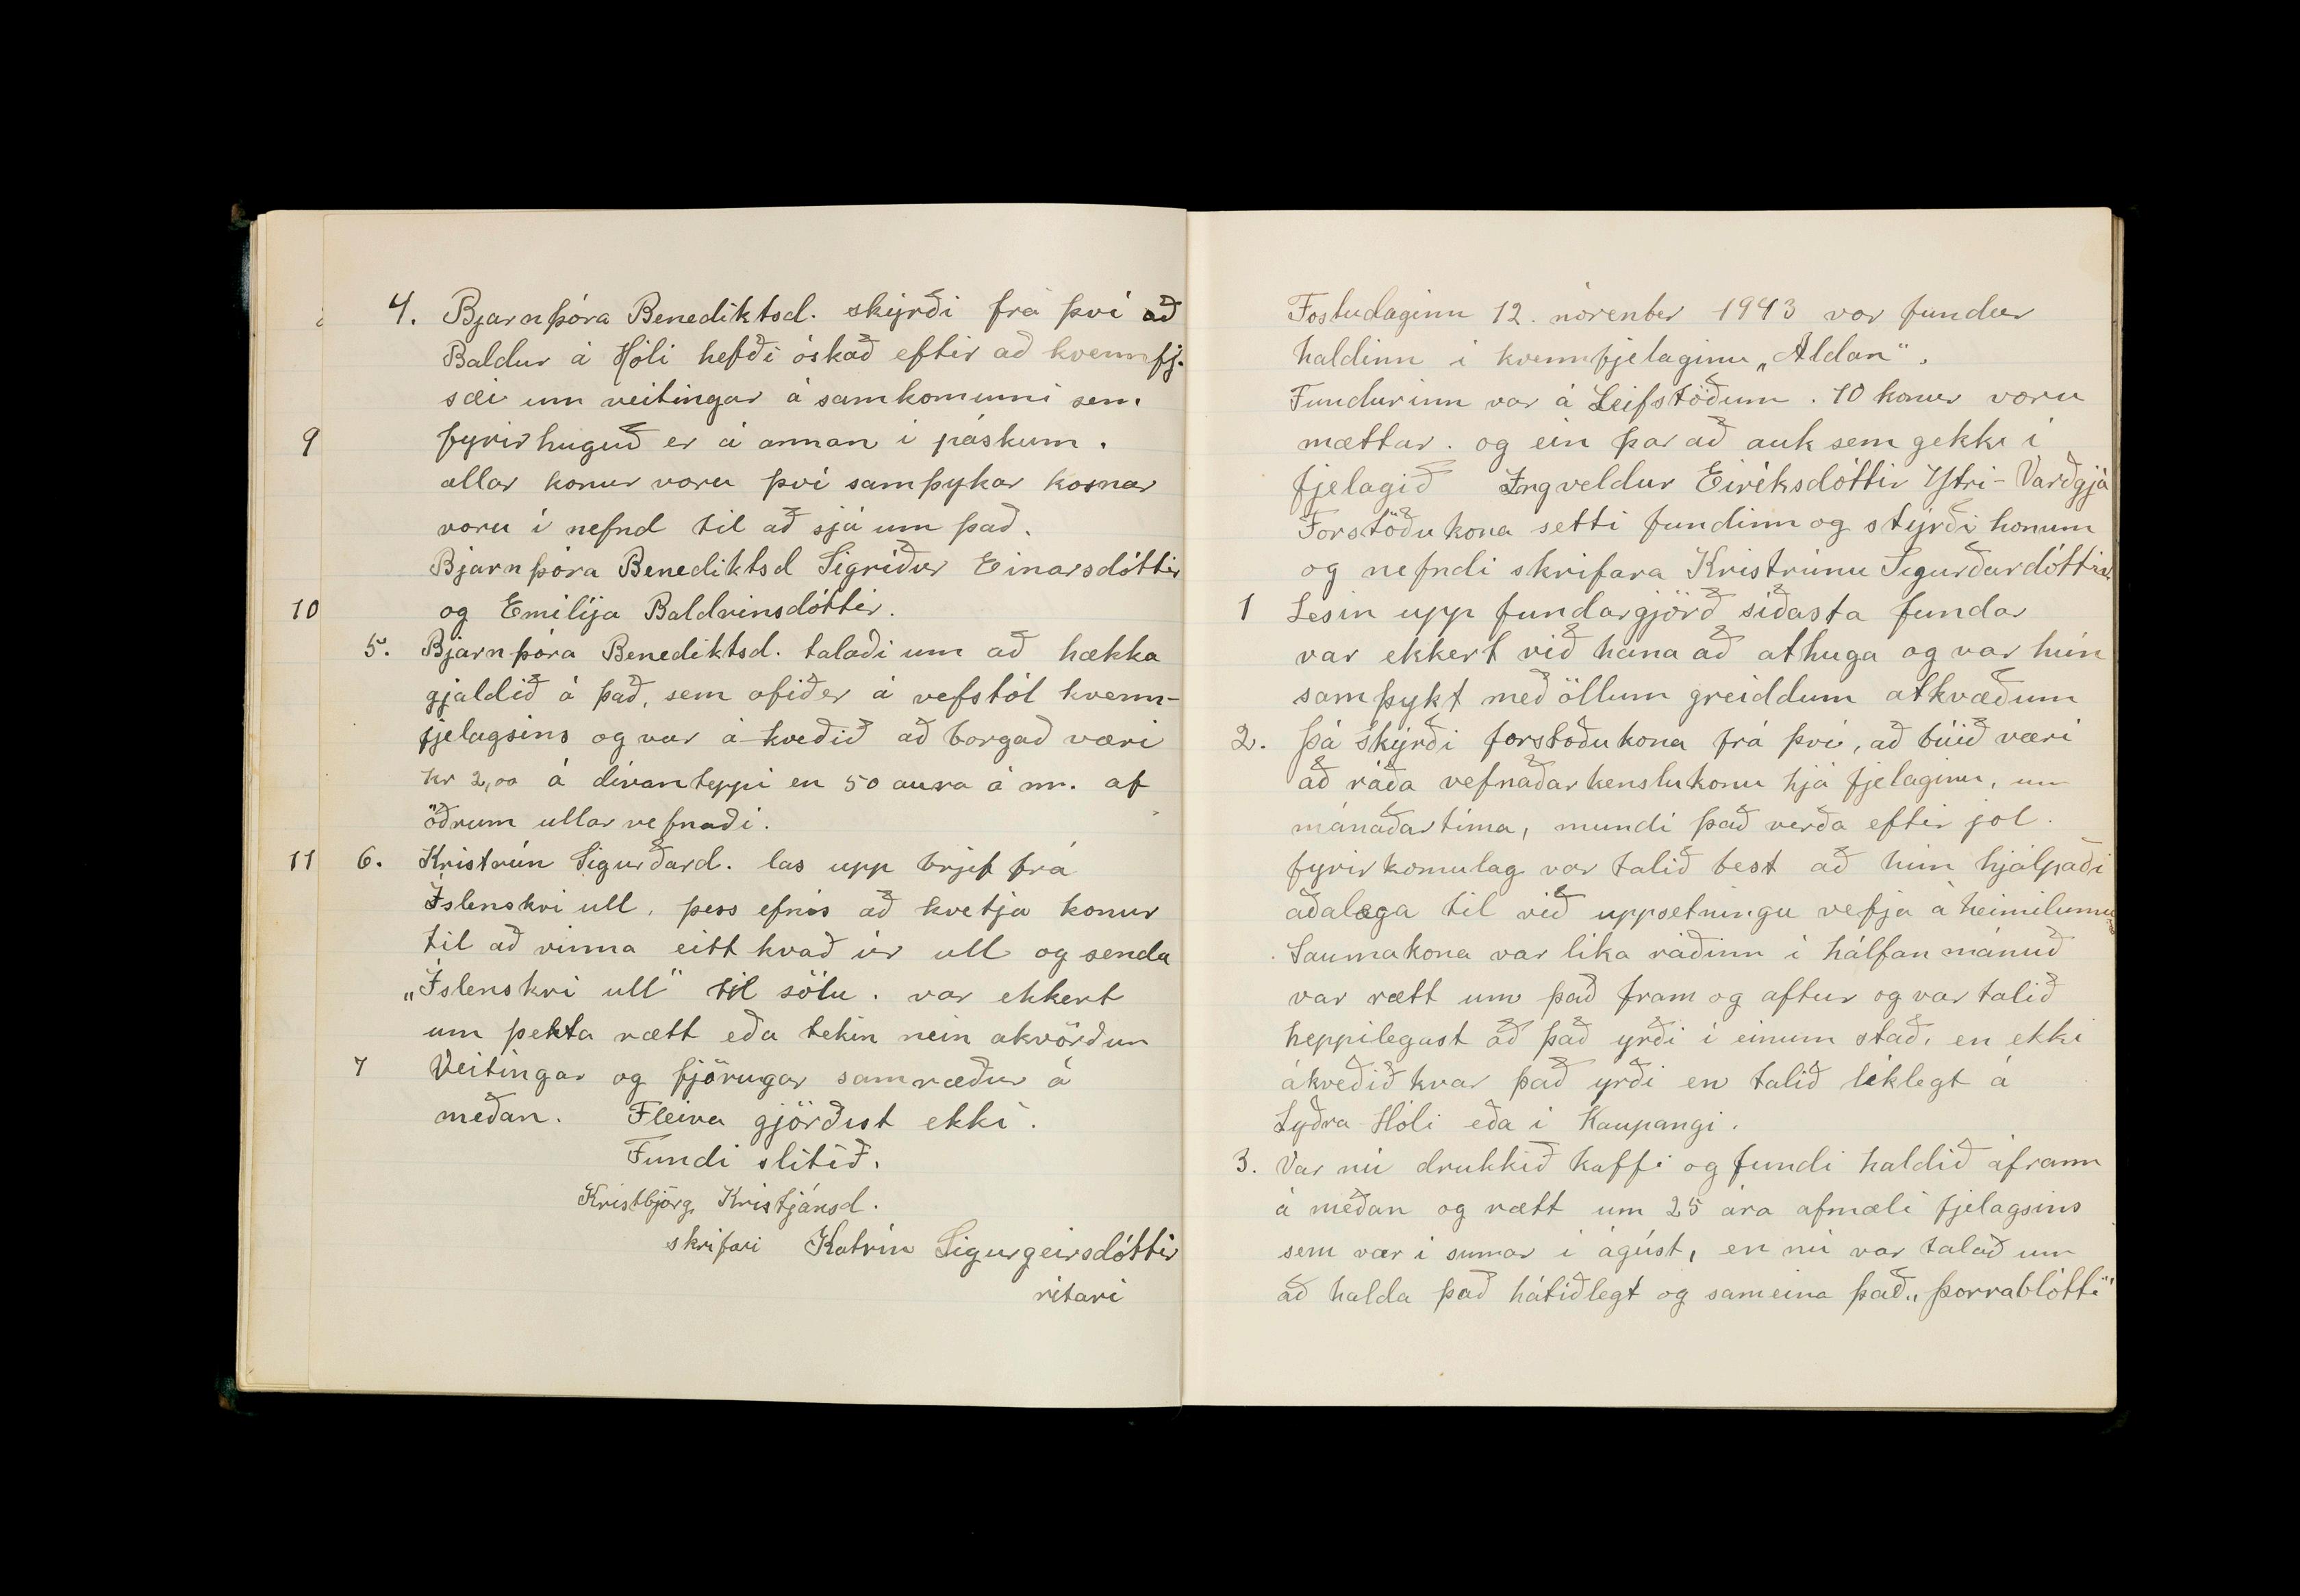 4. Bjarnþóra Benediktsd. skýrði frá því að
Baldur á Hóli hefði óskað eftir að kvennfj.
sæi um veitingar á samkomunni sem
9 fyrirhuguð er á annan í páskum.
allar konur voru því samþykar kosnar
voru í nefnd til að sjá um það.
Bjarnþóra Benediktsd Sigríður Einarsdóttir
10 og Emilija Baldvinsdóttir.
5. Bjarnþóra Benediktsd. talaði um að hækka
gjaldið á það, sem ofið er á vefstól kvenn-
fjelagsins og var á-kveðið að borgað væri
kr 2,00 á dívanteppi en 50 aura á m. af
öðrum ullarvefnaði.
11 6. Kristrún Sigurðard. las upp brjef frá
Íslenskri ull, þess efnis að kvetja konur
til að vinna eitthvað úr ull og senda
„Íslenskri ull" til sölu. var ekkert
um þetta rætt eða tekin nein akvörðun
7 Veitingar og fjörugar samræður á
meðan. Fleira gjörðist ekki.
Fundi slitið.
Kristbjörg Kristjánsd.
skrifari Katrín Sigurgeirsdóttir
ritari
Fostudaginn 12. nóvenber 1943 var fundur
haldinn í kvennfjelaginu „Aldan".
Fundurinn var á Leifstöðum. 10 konur voru
mættar. og ein þar að auk sem gekk í
fjelagið Ingveldur Eiríksdóttir Ytri-Varðgjá
Forstöðukona setti fundinn og stýrði honum
og nefndi skrifara Kristrúnu Sigurðardóttir.
1 Lesin upp fundargjörð síðasta fundar
var ekkert við hana að athuga og var hún
samþykt með öllum greiddum atkvæðum
2. Þá skýrði forstoðukona frá því, að búið væri
að ráða vefnaðarkenslukonu hjá fjelaginu, um
mánaðartíma, mundi það verða eftir jol.
fyrirkomulag var talið best að hún hjálpaði
aðalega til við uppsetningu vefja á heimilunum
Saumakona var líka ráðinn í hálfan mánuð
var rætt um það fram og aftur og var talið
heppilegast að það yrði í einum stað, en ekki
ákveðið kvar það yrði en talið líklegt á
Syðra-Hóli eða í Kaupangi.
3. Var nú drukkið kaffi og fundi haldið áfram
á meðan og rætt um 25 ára afmæli fjelagsins
sem var í sumar í ágúst, en nú var talað um
að halda það hátíðlegt og sameina það „þorrablótti"